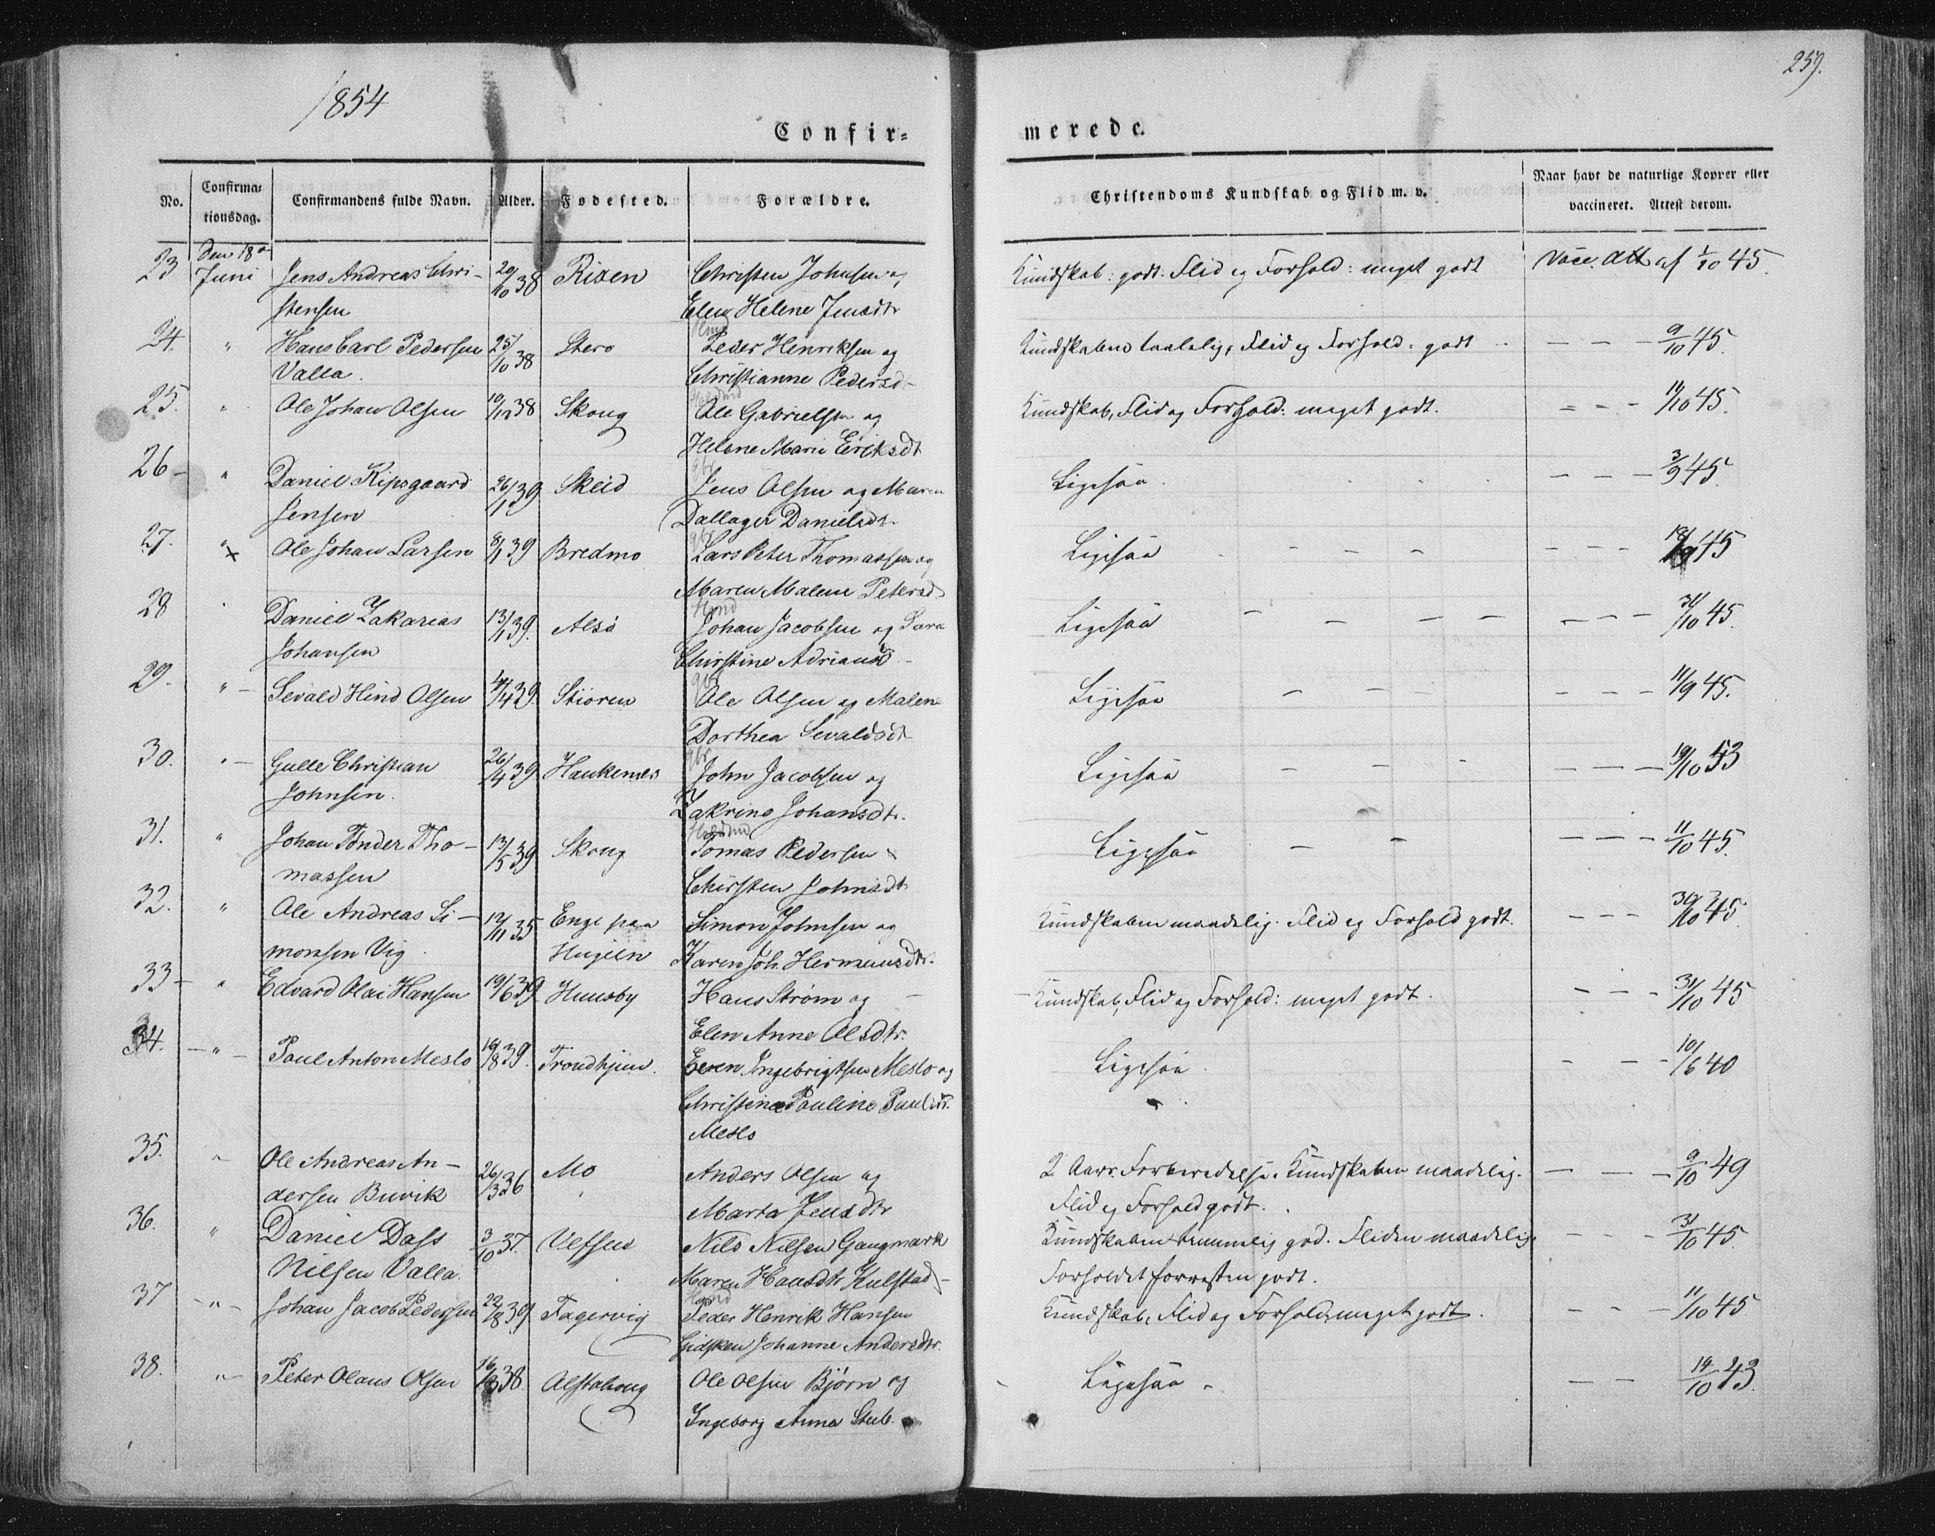 1854
259.
Confir=
merede.
No.
Confirma=
tionsdag.
Confirmandens fulde Navn.
Alder.
Fødested.
Forældre.
Christendoms Kundskab og Flid m. v.
Naar havt de naturlige Kopper eller
vaccineret. Attest derom.
23 Den 18de Juni Jens Andreas Chri- 20/10 38 Christen Johnsen og Kundskab: godt. Flid og Forhold: meget godt Vacc. Att. af 1/10 45.
stensen Elen Helene Jensdtr
24. " Hans Carl Pedersen 25/10 38 Stero Peder Henriksen og Kundskaben taalelig, Flid og Forhold: godt - - - 9/10 45.
Valla. Christianne Pedersd-
25. " Ole Johan Olsen 10/12 38 Skoug Ole Gabrielsen og Kundskab, Flid og Forhold: meget godt. - - - 11/10 45.
Helene Marie Eriksdt
26- " Daniel Kipsgaard 26/1 39 Skeid Jens Olsen og Maren Ligesaa. - - - 3/9 45.
Jensen Dallager Danielsdt.
27. " Ole Johan Larsen 8/1 39 Bredmo Lars Peter Thomassen og Ligesaa - - - 18/9 45
Maren Malene Petersd
28 Daniel Zakarias 13/1 39. Alsø Johan Jacobsen og Sara Ligesaa - - - 31/10 45.
Johansen Christine Adriansd
29. " Sevald Hind Olsen Stioren Ole Olsen og Malene Ligesaa - - - 11/9 45.
Dorthea Sevaldsdt
30. " Gulle Christian 26/4 39 Haukenæs John Jacobsen og Ligesaa - - - 19/10 53
Johnsen. Zakrine Johansdtr.
31. " Johan Tønder Tho- 13/5 39 Skoug Tomas Pedersen Ligesaa - - - 11/10 45.
massen Christen Johnsdt
32. " Ole Andreas Si- 12/11 35 Enge paa Simon Johnsen og Kundskaben maadelig. Flid og Forhold godt. - - - 30/10 45
monsen Vig. Karen Joh. Hermansdtr.
33- " Edvard Olai Hansen 19/6 39 Huusby Hans Strøm og Kundskab, Flid og Forhold: meget godt. - - - 31/10 45
Elen Anne Olsdtr.
34. " Paul Anton Meslo 19/8 39. Trondhjem. Even Ingebrigtsen Meslo og Ligesaa. - - 10/6 40
Christine Pauline Paulsdtr.
Meslo
35. " Ole Andreas An- 26/3 36 Mo Anders Olsen og 2 Aars Forberedelse. Kundskaben maadelig. - - - 9/10 49
dersen Buvik Marta Jensdtr Flid og Forhold godt.
36. " Daniel Dass 3/10 37. Vefsen Nils Nilsen Gangmark Kundskaben temmelig god. Fliden maadelig - - - 31/10 45.
Nilsen Valla. Maren Hansdtr Kulstad- Forholdet forresten godt.
37 " Johan Jacob Pedersen 22/8 39 Fagervig Peder Henrik Hansen Kundskab, Flid og Forhold, meget godt. - - 11/10 45
Gidsken Johanne Andersdtr.
38. " Peter Olaus Olsen 38. Alstahoug Ole Olsen Bjørn og Ligesaa - - - 14/10 43.
Ingeborg Anna Stub.